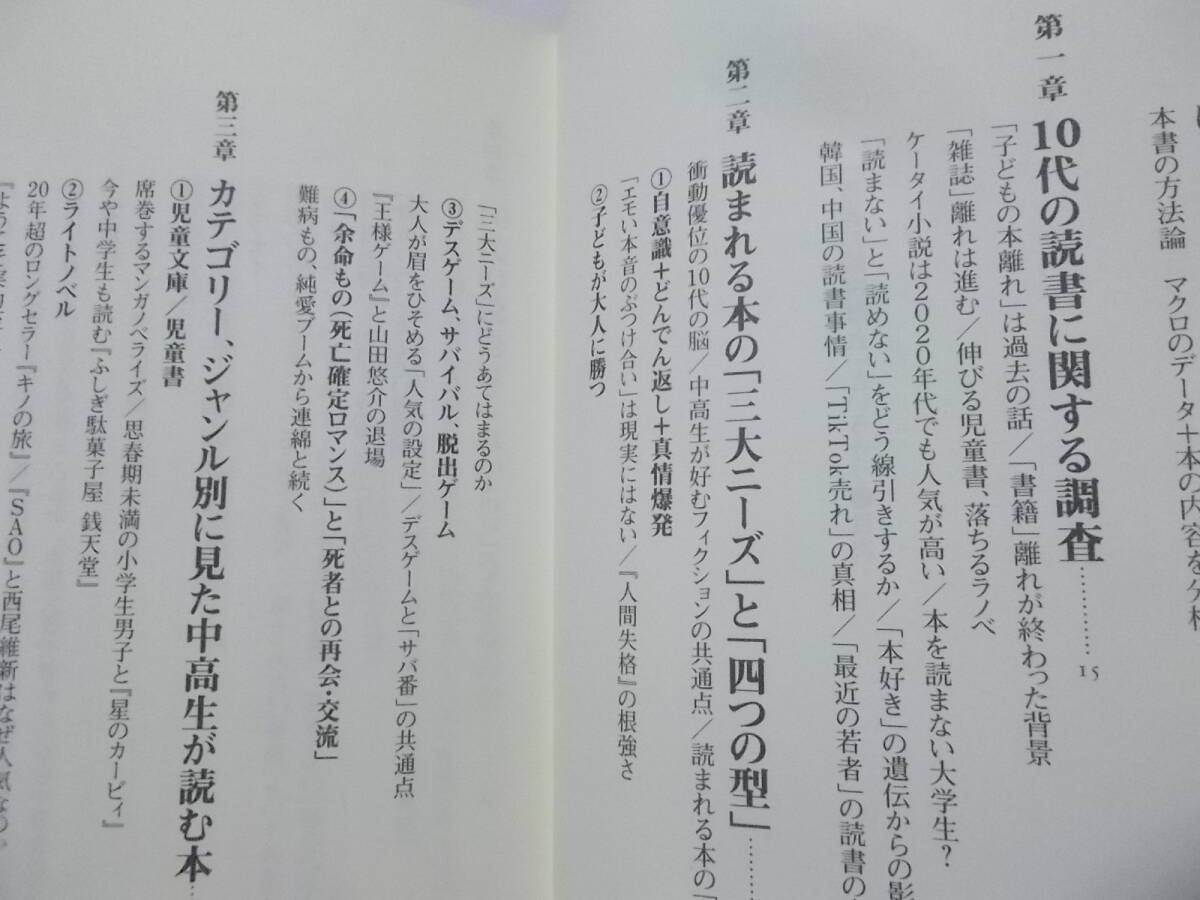 本書の方法論 マクロのデータ＋本の内容を分析
第一章 10代の読書に関する調査…………15
「子どもの本離れ」は過去の話／「書籍」離れが終わった背景
「雑誌」離れは進む／伸びる児童書、落ちるラノベ
ケータイ小説は2020年代でも人気が高い／本を読まない大学生？
「読まない」と「読めない」をどう線引きするか／「本好き」の遺伝からの影
韓国、中国の読書事情／「TikTok売れ」の真相／「最近の若者」の読書の
第二章 読まれる本の「三大ニーズ」と「四つの型」……
衝動優位の10代の脳／中高生が好むフィクションの共通点／読まれる本の「
①自意識＋どんでん返し＋真情爆発
「エモい本音のぶつけ合い」は現実にはない／『人間失格』の根強さ
②子どもが大人に勝つ
「三大ニーズ」にどうあてはまるのか
③デスゲーム、サバイバル、脱出ゲーム
大人が眉をひそめる「人気の設定」／デスゲームと「サバ番」の共通点
『王様ゲーム』と山田悠介の退場
④「余命もの（死亡確定ロマンス）」と「死者との再会・交流」
難病もの、純愛ブームから連綿と続く
第三章 カテゴリー、ジャンル別に見た中高生が読む本…
①児童文庫／児童書
席巻するマンガノベライズ／思春期未満の小学生男子と『星のカービィ』
今や中学生も読む『ふしぎ駄菓子屋 銭天堂』
②ライトノベル
20年超のロングセラー『キノの旅』／『SAO』と西尾維新はなぜ人気なのか
『ようこそ実力